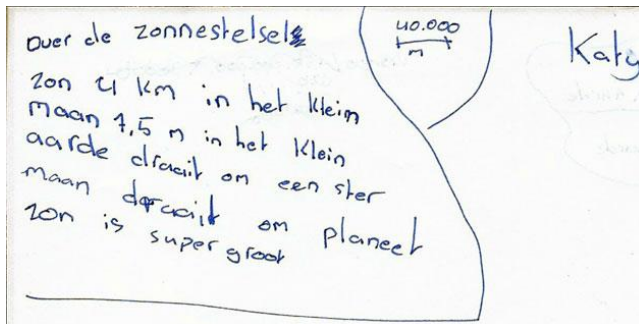 over de zonnestelsel
40.000
m
Katy
zon 4 km in het klein
maan 7,5 m in het klein
aarde draait om een ster
maan draait om planeet
zon is super groot